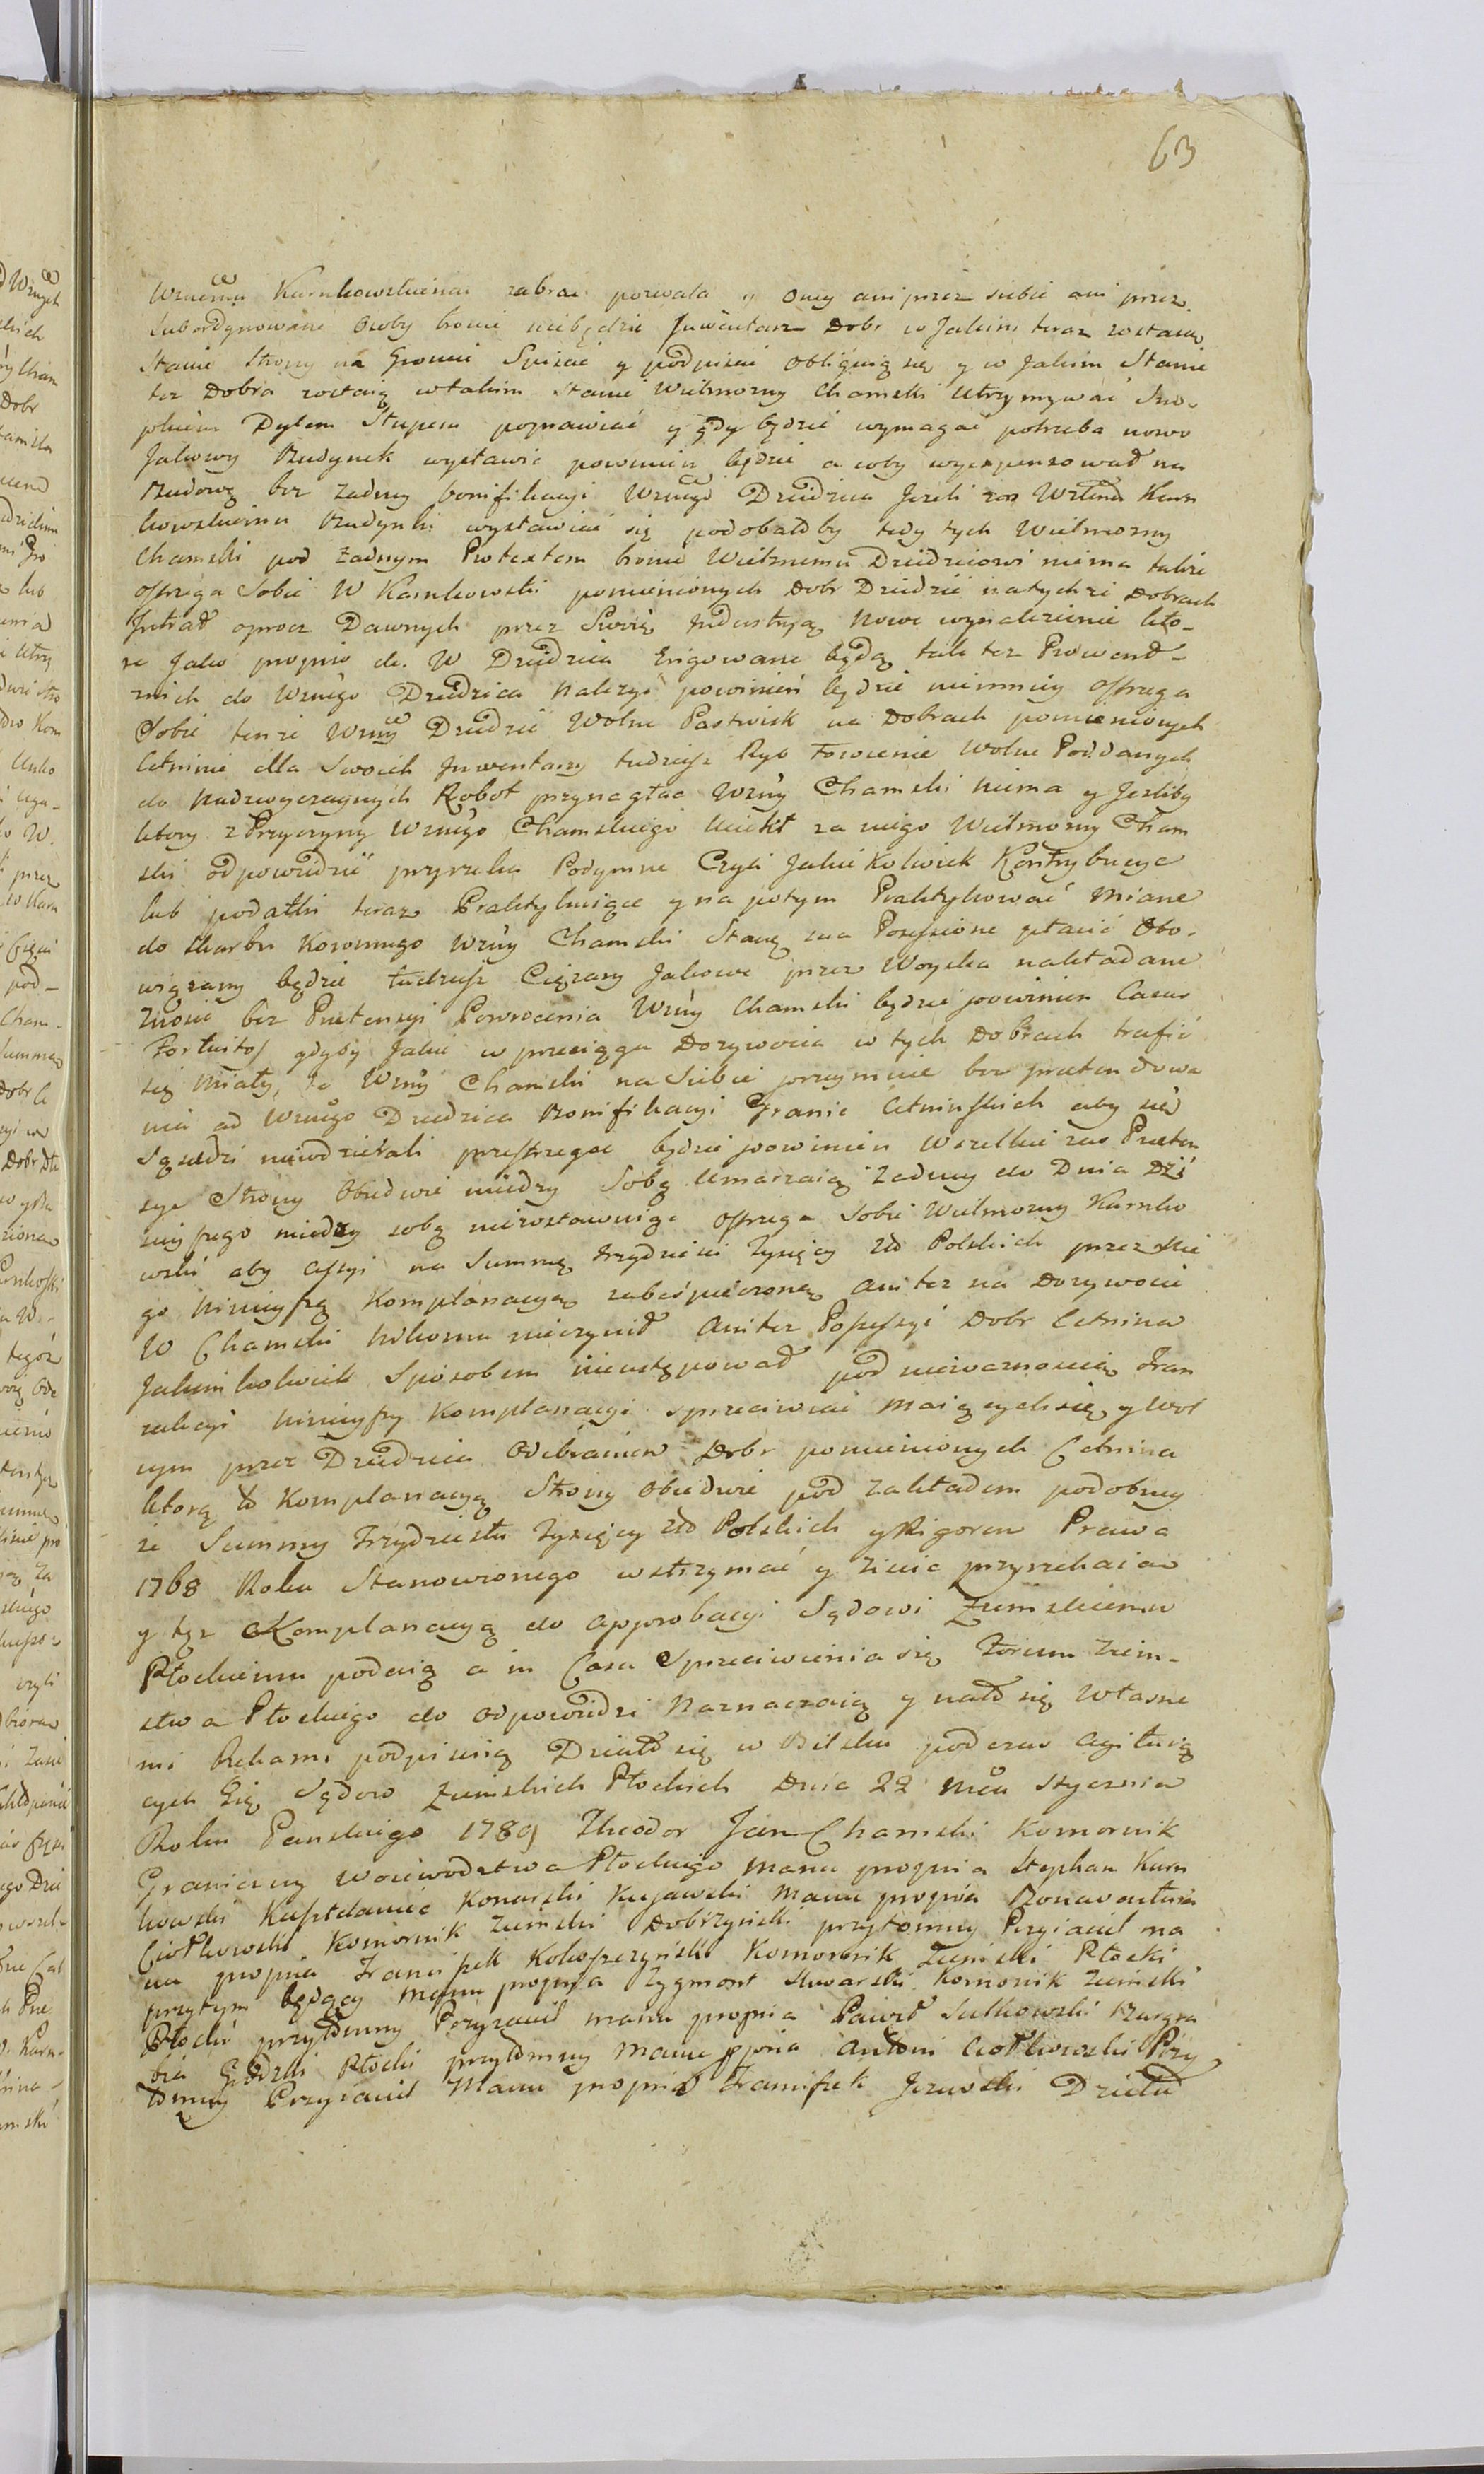 63
Wznemu Karnkowskiemu zabrac pozwala y oney ani przez siebie ani przez
subordynowane Osoby bronic niebędzie Inwentarz Dobr w Jakim teraz zostaią
Stanie Strony na Groncie Spisać y podpisać obliguią się y w Jakim Stanie
też Dobra zostaią w takim Stanie Wielmozny Chamski Utrzymywać Sno-
pkiem Dylem Słupem poprawiać y gdy będzie wymagać potrzeba nowo
Jakowy Budynek wystawić powinien będzie a coby wyexpensował na
Budowę bez Zadney bonifikacyi Wznego Dziedzica Jezeli zas Wzlmu Karn
kowskiemu Budynki wystawiać się podobałoby tedy tych Wielmozny
Chamski pod zadnym Pretextem bronić Wielznemu Dziedzicowi niema takze
ostrzega Sobie W Karnkowski pomienionych Dobr Dziedzic na tychze Dobrach
Intrat oprocz Dawnych przez Swoię Industryą Nowe wynalezienie kto-
re Jako proprio de. W Dziedzica Erigowane będą tak tez Prowent
z nich do Wznego Dziedzica Nalezyć powinien będzie niemniey ostrzega
Sobie tenze Wzny Dziedzic Wolne Pastwisk na Dobrach pomienionych
Cetninie dla Swoich Inwentarzy tudziesz Ryb Łowienie Wolne Poddanych
do Nadzwyczaynych Robot przynaglac Wzny Chamski niema y Jezliby
ktory z Przyczyny Wznego Chamskiego Uciekł za niego Wielmozny Cham
ski odpowiedzić przyrzeka Podymne Czyli Jakie Kolwiek Kontrybucye
lub podatki teraz Praktykuiące y na potym Praktykować Miane
do skarbu Koronnego Wzny Chamski Stante sua Possesione płacić Obo-
wiązany będzie tudziesz Cięzary Jakowe przez Woyska nakładane
Znosić bez Pretensyi Powrocenia Wzny Chamski będzie powinien Casus
Fortuitos gdyby Jakie w przeciągu Dozywocia w tych Dobrach trafić
się Miały, te Wzny Chamski na Siebie przyimuie bez pretendowa
nia ad Wznego Dziedzica Bonifikacyi Granic Cetninskich aby się
Sąsiedzi niewdzierali przestrzegac będzie powinien Wszelkie zas Preten
sye Strony Obiedwie miedzy Sobą Umarzaią Zadney do Dnia Dzi
sieyszego miedzy sobą niezostawuiąc ostrzega Sobie Wielmozny Karnko
wski aby Cessyi na Summę trzydziesci Tysięcy Zło Polskich przez Nie
go Ninieyszą Komplanacyą zabespieczoną ani tez na Dozywocie
W Chamski Nikomu nieczynił ani tez Possessyi Dobr Cetnina
Jakimkolwiek Sposobem nieustępował pod niewaznoscią Tran
zakcyi Ninieyszy Komplanacyi sprzeciwiać Maiących się y Wol
nym przez Dziedzica Odebraniem Dobr pomienionych Cetnina
ktorą to Komplanacyą Strony Obiedwie pod Zakładem podobney
ze Summy Trzydziestu Tysięcy Zło Polskich y Rigorem Prawa
1768 Roku Stanowionego wstrzymać y ziscic przyrzekaią
y tęz Komplanacyą do approbacyi Sądowi Ziemskiemu
Płockiemu podaią a in Casu Sprzeciwienia się Forum Ziem-
stwa Płockiego do odpowiedzi Naznaczaią y na to się Własne
mi Rekami podpisuią Działo się w Bilsku podczas agituią
cych Się Sądow Ziemskich Płockich Dnia 22 Mca Stycznia
Roku Panskiego 1789 Theodor Jan Chamski Komornik
Graniczny Woiewodztwa Płockiego manu propria Stephan Karn
kowski Kasztelanic Konarski Kujawski Manu propria Bonawentura
Ciołkowski Komornik Ziemski Dobrzynski przytomny Przyiaciel ma
nu propria Franciszek Kokoszczynski Komornik Ziemski Płocki
przytym będący Manu propria Zygmont Komornik Ziemski
Płocki przytomny Przyiaciel manu propria Paweł Sutkowski Burgra
bia Grodzki Płocki przytomny Manu ppria Antoni Ciołkowski Przy
tomny Przyiaciel Manu propria Franciszek Jezewski Dzieła